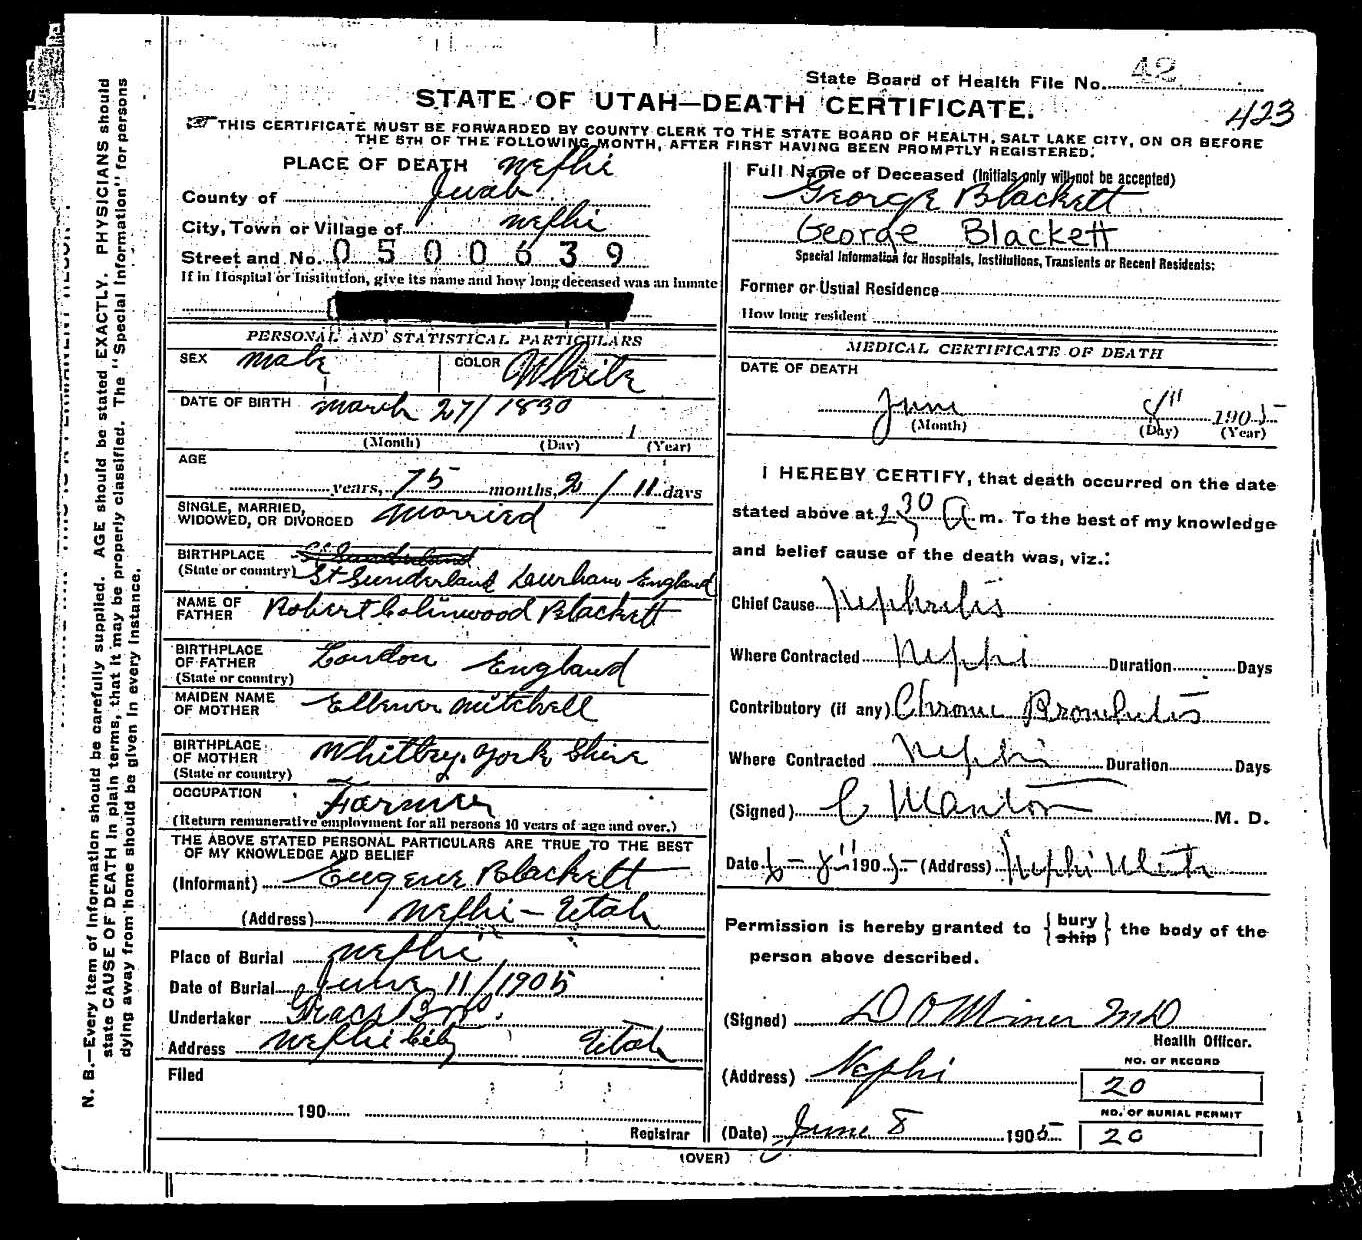 State Board of Health File No. 42
423
STATE OF UTAH—DEATH CERTIFICATE.
THIS CERTIFICATE MUST BE FORWARDED BY COUNTY CLERK TO THE STATE BOARD OF HEALTH, SALT LAKE CITY, ON OR BEFORE
THE 5TH OF THE FOLLOWING MONTH, AFTER FIRST HAVING BEEN PROMPTLY REGISTERED.
PLACE OF DEATH Nephi
County of Juab
City, Town or Village of Nephi
Street and No. 0500639
If in Hospital or Institution, give its name and how long deceased was an inmate
PERSONAL AND STATISTICAL PARTICULARS
SEX male COLOR White
DATE OF BIRTH march 27/1830
(Month) (Day) 1 (Year)
AGE
years, 75 months, 2 / 11 days
SINGLE, MARRIED,
WIDOWED, OR DIVORCED Married
BIRTHPLACE St Sunderland
(State or country) St Sunderland Durham England
NAME OF
FATHER Robert Colinwood Blackett
BIRTHPLACE
OF FATHER London England
(State or country)
MAIDEN NAME
OF MOTHER Ellener Mitchell
BIRTHPLACE
OF MOTHER Whitby, York Shire
(State or country)
OCCUPATION Farmer
(Return remunerative employment for all persons 10 years of age and over.)
THE ABOVE STATED PERSONAL PARTICULARS ARE TRUE TO THE BEST
OF MY KNOWLEDGE AND BELIEF
(Informant) Eugene Blackett
(Address) Nephi - Utah
Place of Burial Nephi
Date of Burial June 11/1905
Undertaker Bros.
Address Nephi City Utah
Filed
190
Registrar
Full Name of Deceased (Initials only will not be accepted)
George Blackett
George Blackett
Special Information for Hospitals, Institutions, Transients or Recent Residents:
Former or Usual Residence
How long resident
MEDICAL CERTIFICATE OF DEATH
DATE OF DEATH
June 8" 1905
(Month) (Day) (Year)
I HEREBY CERTIFY, that death occurred on the date
stated above at 2 30 A. m. To the best of my knowledge
and belief cause of the death was, viz.:
Chief Cause Nephritis
Where Contracted Nephi Duration Days
Contributory (if any) Chronic Bronchitis
Where Contracted Nephi Duration Days
(Signed) M. D.
Date 6 - 8" 1905 (Address) Nephi Utah
Permission is hereby granted to { bury ship } the body of the
person above described.
(Signed) D O Miner MD
Health Officer.
(Address) Nephi
NO. OF RECORD
20
(Date) June 8 1905
NO. OF BURIAL PERMIT
20
(OVER)
N. B.—Every item of information should be carefully supplied. AGE should be stated EXACTLY. PHYSICIANS should
state CAUSE OF DEATH in plain terms, that it may be properly classified. The "Special Information" for persons
dying away from home should be given in every instance.